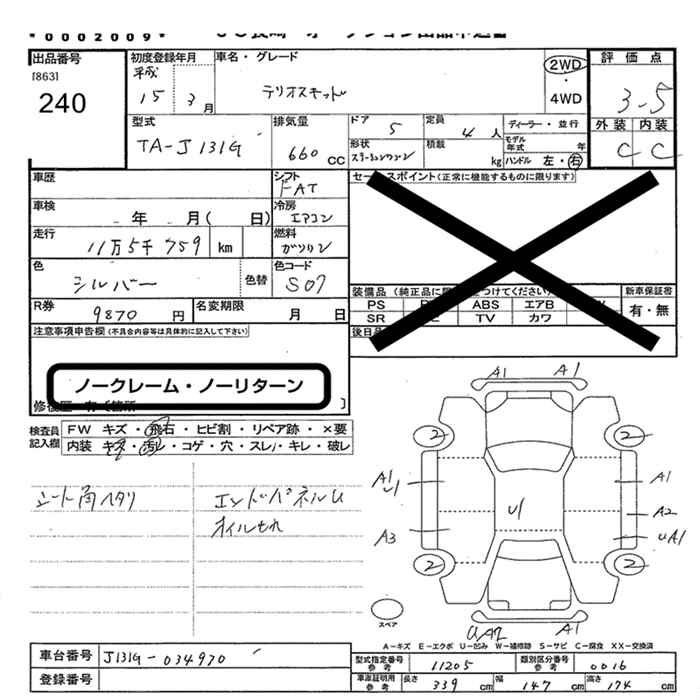 *0002009*
出品番号
[863]
240
初度登録年月
平成
15 3月
車名・グレード
テリオスキッド
2WD
・
4WD
評価点
3.5
外装 内装
C C
型式
TA-J131G
排気量
660 CC
ドア
5
定員
4 人
形状
ステーションワゴン
積載
kg
ディーラー・並行
モデル年式 年
ハンドル 左・右
車歴
シフト
FAT
車検
年 月( 日)
冷房
エアコン
走行
11万5千759 km
燃料
ガソリン
色
シルバー
色替
色コード
S07
R券
9870 円
名変期限
月 日
セールスポイント(正常に機能するものに限ります)
装備品(純正品に つけてください)
PS ABS エアB
SR TV カワ
新車保証書
有・無
後日品
注意事項申告欄(不具合内容等は具体的に記入して下さい)
ノークレーム・ノーリターン
検査員記入欄
FW キズ・飛石・ヒビ割・リペア跡・×要
内装 キズ・汚レ・コゲ・穴・スレ・キレ・破レ
シート角ヘタリ
エンドパネルU
オイルモレ
A1 A1
2 2
A1 U1
A1
U1
A2
A3
UA1
2 2
スペア
UA2 A1
A-キズ E-エクボ U-凹み W-補修跡 S-サビ C-腐食 XX-交換済
車台番号 J131G-034970
登録番号
型式指定番号 参考 11205
類別区分番号 参考 0016
車庫証明用 参考 長さ 339 cm 幅 147 cm 高さ 174 cm